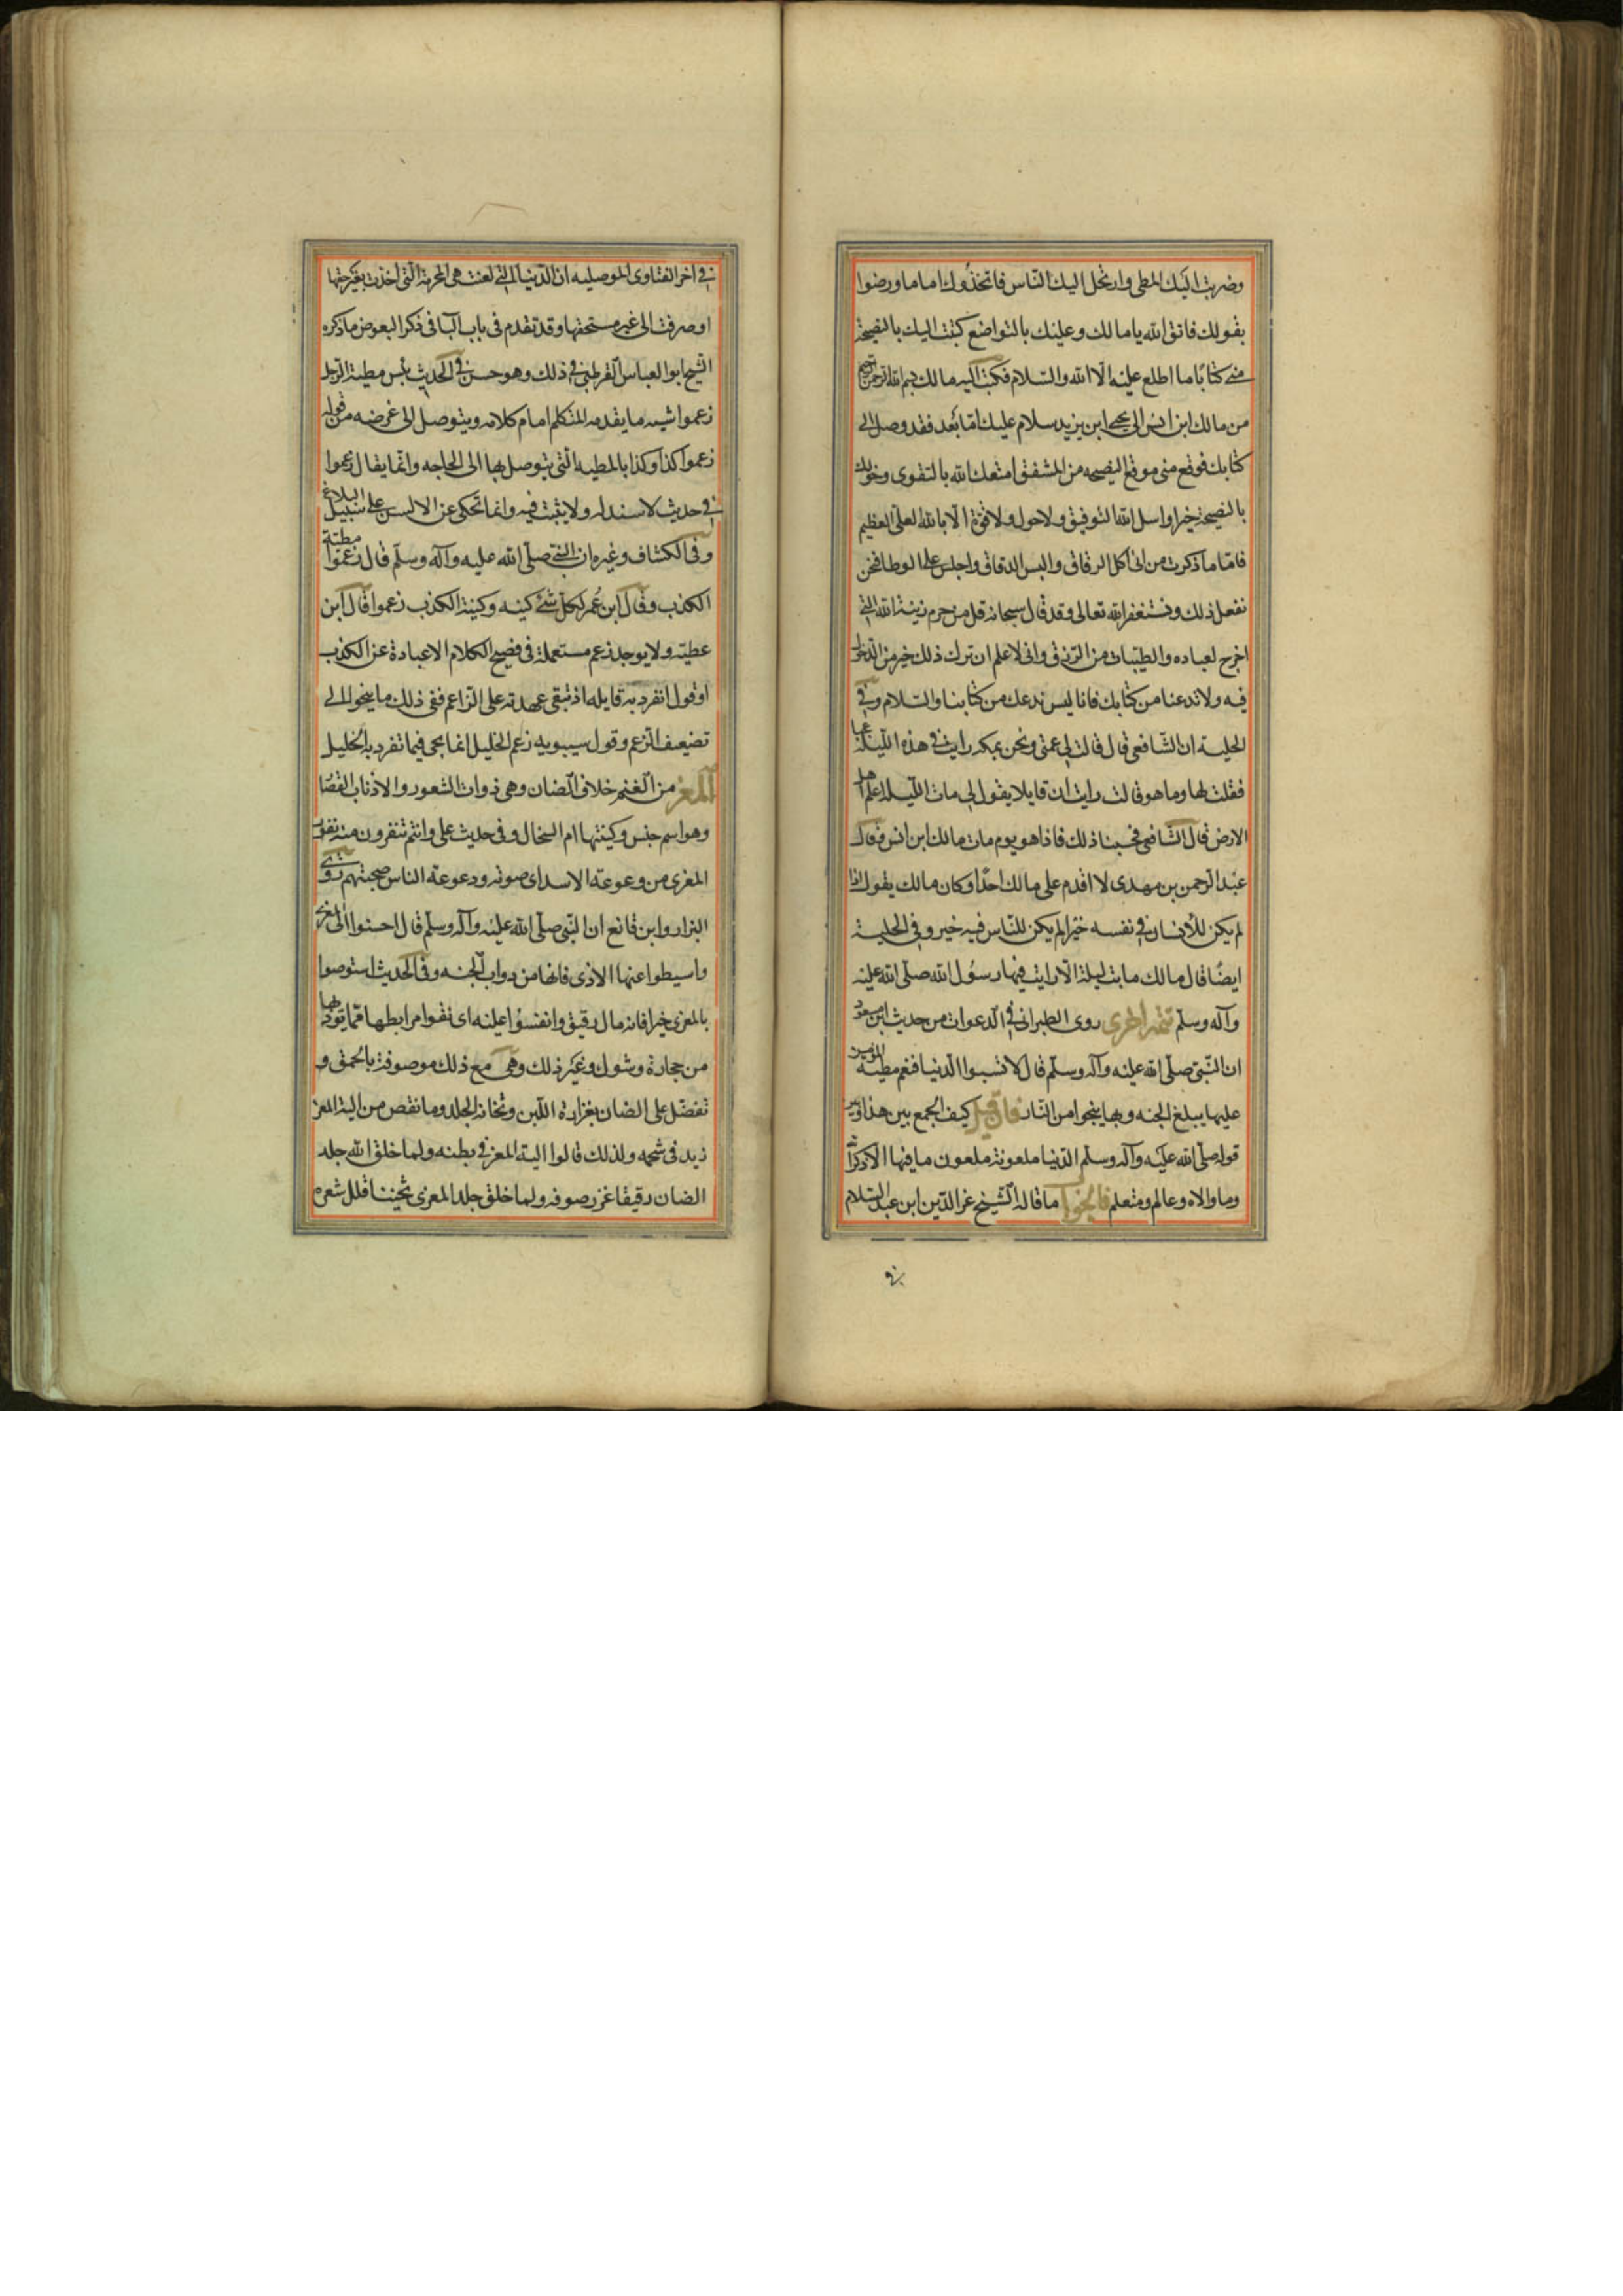 وضربت اليك المطى وارتحل اليك الناس فاتخذوك اماما ورضوا
بقولك فاتق الله يا مالك وعليك بالتواضع كتبت اليك بالنصيحة
منى كتابًا ما اطلع عليه الا الله والسلام فكتب اليه مالك بسم الله الرحمن الرحيم
من مالك ابن انس الى يحيى ابن يزيد سلام عليك امّا بعد فقد وصل الى
كتابك فوقع منى موقع النصيحه من المشفق امتعك الله بالتقوى وخولك
بالنصيحة خيرا واسل الله التوفيق ولا حول ولا قوة الا بالله العلى العظيم
فامّا ما ذكرت من انى اكل الرقاق والبس الدقاق واجلس على الوطا فنحن
نفعل ذلك ونستغفر الله تعالى وقد قال سبحانه قل من حرم زينة الله التى
اخرج لعباده والطيبات من الرزق وانى لاعلم ان ترك ذلك خير من الدخول
فيه ولا تدعنا من كتابك فانا ليس ندعك من كتابنا والسلام وفى
الحلية ان الشافعى قال قالت لى عمتى ونحن بمكه رايت فى هذه الليلة عجبا
فقلت لها وما هو قالت رايت ان قايلا يقول لى مات الليلة اعلم اهل
الارض قال الشافعى فحسبنا ذلك فاذا هو يوم مات مالك ابن انس وقال
عبد الرحمن بن مهدى لا اقدم على مالك احدًا وكان مالك يقول اذا
لم يكن للانسان فى نفسه خير لم يكن للناس فيه خير وفى الحلية
ايضًا قال مالك ما بت ليلة الا رايت فيها رسول الله صلى الله عليه
وآله وسلم تتمة اخرى روى الطبرانى فى الدعوات من حديث ابن مسعود
ان النبى صلى الله عليه وآله وسلم قال لا تسبوا الدنيا فنعم مطية المومن
عليها يبلغ الجنه وبها ينجوا من النار فان قيل كيف الجمع بين هذا وبين
قوله صلى الله عليه وآله وسلم الدنيا ملعونة ملعون ما فيها الا ذكر الله
وما والاه وعالم ومتعلم فالجواب ما قاله الشيخ عز الدين ابن عبد السلام
فى
فى اخر الفتاوى الموصليه ان الدنيا التى لعنت هى المحرمة التى اخذت بغير حقها
او صرفت الى غير مستحقها وقد تقدم فى باب البا فى ذكر البعوض ما ذكره
الشيخ ابو العباس القرطبى فى ذلك وهو حسن فى الحديث بئس مطية الرجل
زعموا شبه ما يقدمه المتكلم امام كلامه ويتوصل الى غرضه من قوله
زعموا كذا وكذا بالمطيه التى يتوصل بها الى الحاجه وانما يقال زعموا
فى حديث لا سند له ولا يثبت فيه وانما تحكى عن الالسن على سبيل البلاغ
وفى الكشاف وغيره ان النبى صلى الله عليه وآله وسلم قال زعموا مطية
الكذب وقال ابن عمر لكل شئ كنيه وكنية الكذب زعموا قال ابن
عطيه ولا يوجد زعم مستعملة فى فصيح الكلام الا عبادة عن الكذب
او قول انفرد به قايله اذ تبقى عهدته على الزاعم ففى ذلك ما ينحو الى
تضعيف الزعم وقول سيبويه زعم الخليل انما يجى فيما تفرد به الخليل
المعز من الغنم خلاف الضان وهى ذوات الشعور والاذناب القصار
وهو اسم جنس وكنيتها ام السخال وفى حديث على وانتم تنفرون منه نفور
المعزى من وعوعة الاسد اى صوته ووعوعة الناس ضجتهم روى
البزار وابن قانع ان النبى صلى الله عليه وآله وسلم قال احسنوا الى المعزى
واميطوا عنها الاذى فانها من دواب الجنه وفى الحديث استوصوا
بالمعزى خيرا فانه مال رقيق وانفسوا عليه اى نقوا مرابطها مما يؤذيها
من حجارة وشوك وغير ذلك وهى مع ذلك موصوفة بالحمق و
تفضل على الضان بغزارة اللبن وثخانة الجلد وما نقص من الية المعز
زيد فى شحمه ولذلك قالوا الية المعز فى بطنه ولما خلق الله جلد
الضان رقيقا غزر صوفه ولما خلق جلد المعزى ثخينا قلل شعره